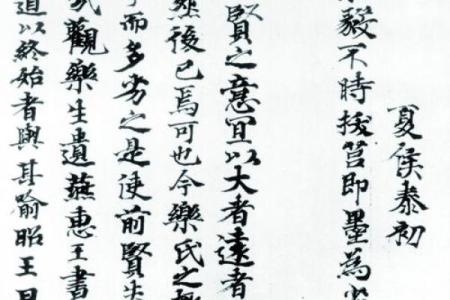 夏侯泰初
毅不時拔莒即墨為
賢之意宜以大者遠者
然後已焉可也今樂氏之趣
而多劣之是使前賢失
觀樂生遺燕惠王書
道以終始者與其喻昭王曰